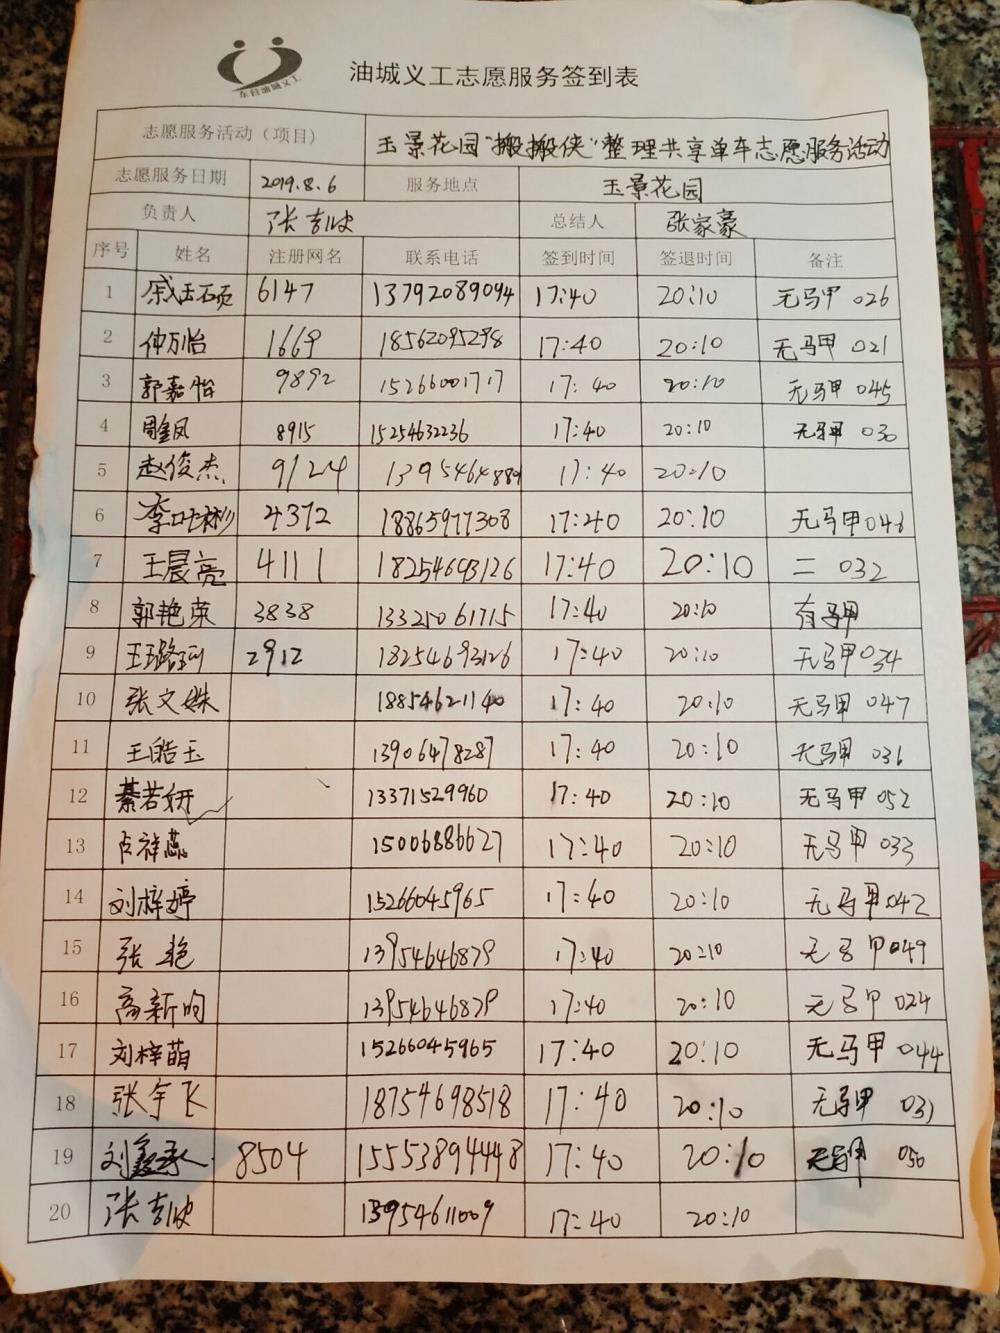 东营油城义工
油城义工志愿服务签到表
志愿服务活动（项目） 玉景花园"搬搬侠"整理共享单车志愿服务活动
志愿服务日期 2019.8.6 服务地点 玉景花园
负责人 张 总结人 张家豪
序号 姓名 注册网名 联系电话 签到时间 签退时间 备注
1 戚玉硕 6147 13792089094 17:40 20:10 无马甲 026
2 仲万怡 1669 18562095298 17:40 20:10 无马甲 021
3 郭嘉怡 9892 15266001717 17:40 20:10 无马甲 045
4 周金凤 8915 15254632236 17:40 20:10 无马甲 030
5 赵俊杰 9124 1395464889 17:40 20:10
6 李叶彬 4372 18865977308 17:40 20:10 无马甲 046
7 王晨亮 4111 18254693126 17:40 20:10 二 032
8 郭艳荣 3838 13325061715 17:40 20:10 有马甲
9 王璐珂 2912 18254693126 17:40 20:10 无马甲 034
10 张文姝 18854621140 17:40 20:10 无马甲 047
11 王皓玉 13906478287 17:40 20:10 无马甲 036
12 綦若妍 13371529960 17:40 20:10 无马甲 052
13 卢祥蕊 15006886627 17:40 20:10 无马甲 033
14 刘梓婷 15266045965 17:40 20:10 无马甲 042
15 张艳 13954646879 17:40 20:10 无马甲 049
16 高新昀 13954646879 17:40 20:10 无马甲 024
17 刘梓萌 15266045965 17:40 20:10 无马甲 044
18 张宇飞 18754698518 17:40 20:10 无马甲 031
19 刘鑫承 8504 15553894448 17:40 20:10 无马甲 050
20 张 13954611009 17:40 20:10